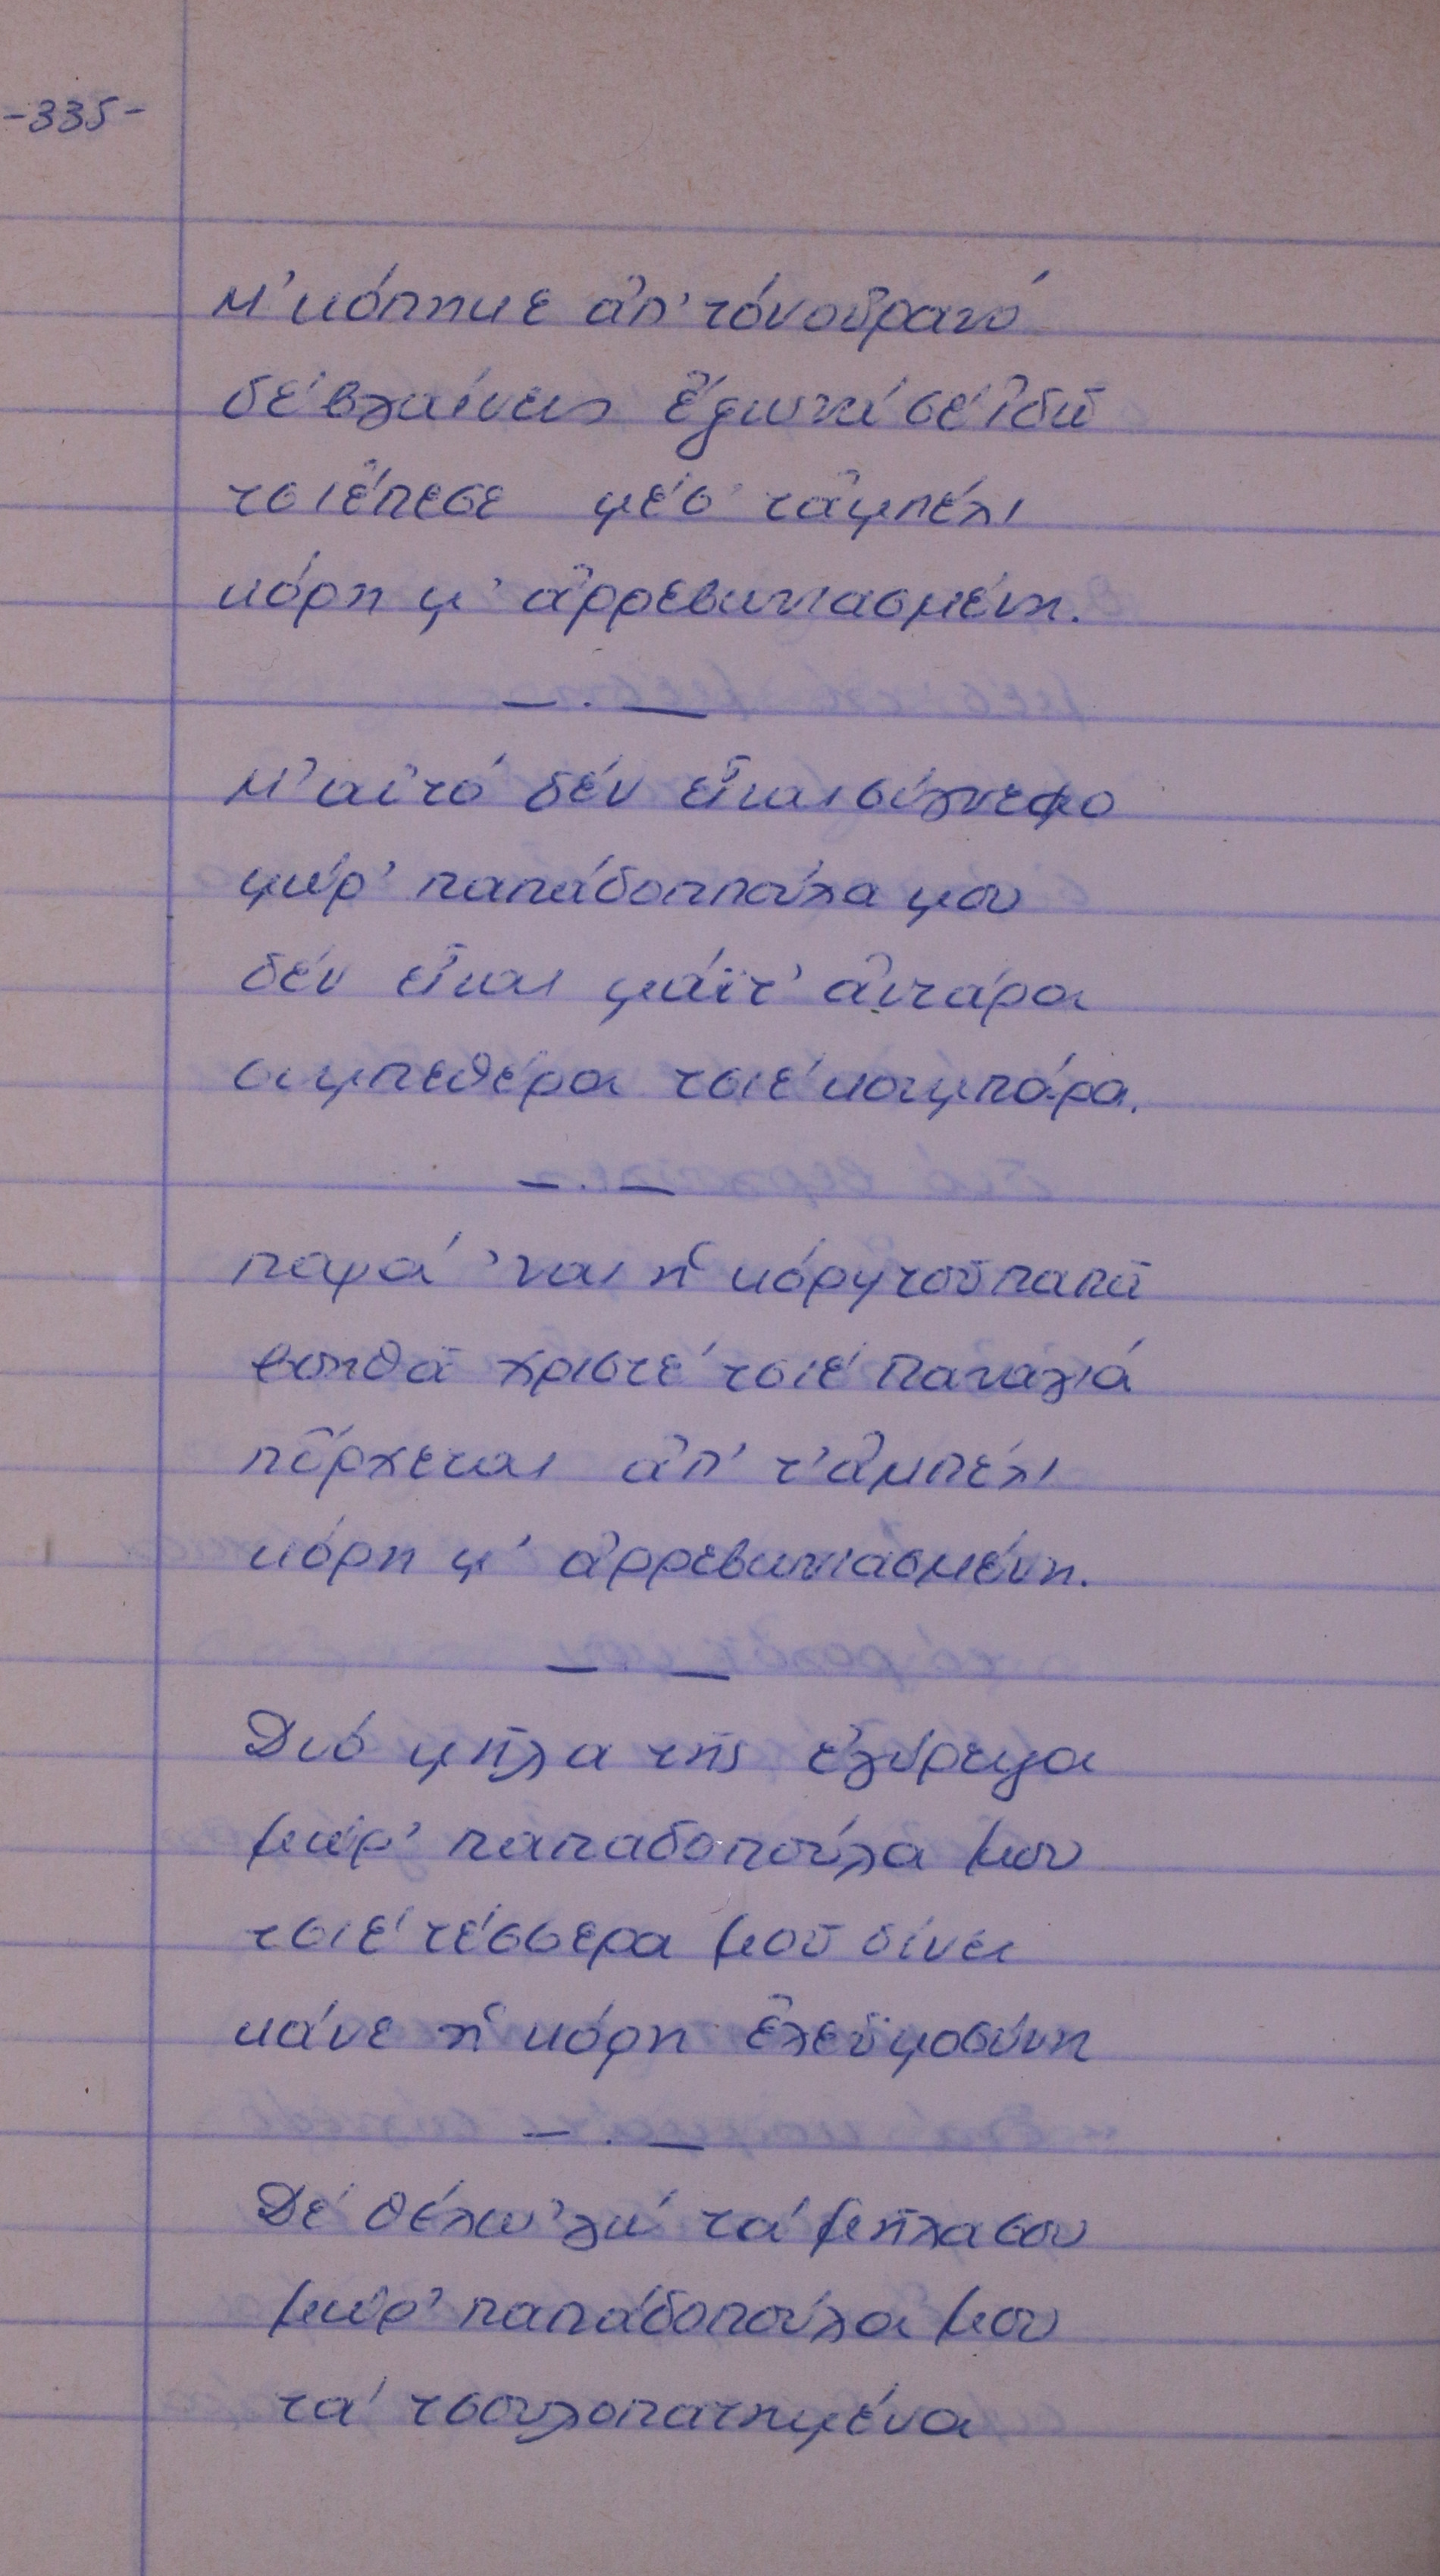 -335-
Μ' κόπηκε ἀπ' τόν οὐρανό
δέ βγαίνεις ἔξω νά σέ ἰδῶ
τσιἔπεσε μέσ' τἀμπέλι
κόρη μ' ἀρρεβωνιασμένη.
Μ' αὐτό δέν εἶναι σύγνεφο
μώρ' παπάδοππούλα μου
δέν εἶναι μάϊτ' ἀντάρα
συμπεθέρα τσιέ κουμπάρα.
παψά 'ναι ἡ κόρη τοῦ παπᾶ
βοηθᾶ χριστέ τσιέ Παναγιά
πὄρχεται ἀπ' τ' ἀμπέλι
κόρη μ' ἀρρεβωνιασμένη.
Διό μῆλα τῆς ἐγύρεψα
μώρ' παπαδοπούλα μου
τσιέ τέσσερα μοῦ δίνει
κάνε ἡ κόρη ἐλεϋμοσύνη
Δέ θέλω 'γώ τά μῆλα σου
μώρ' παπάδοπούλα μου
τά τσουλοπατημένα